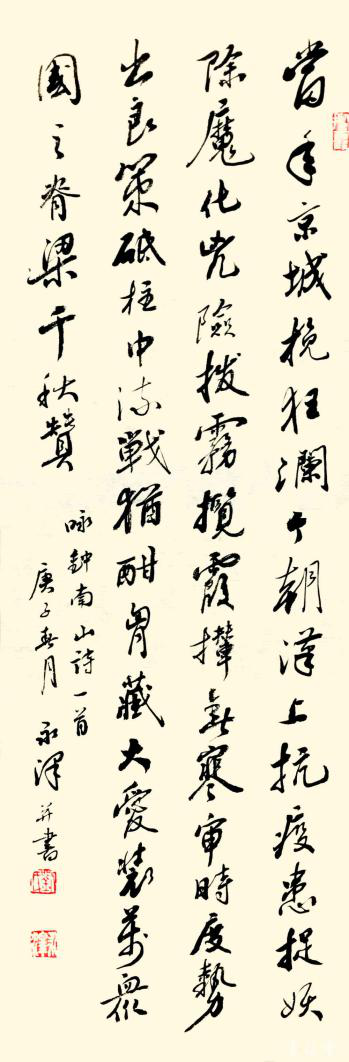 當年京城挽狂瀾今朝漢上抗疫患捉妖
除魔化兇險撥霧攬霞寒審時度勢
出良策砥柱中流戰猶酣胷藏大愛裝萬眾
國之脊梁千秋贊
咏鍾南山詩一首
庚子春月永澤并書